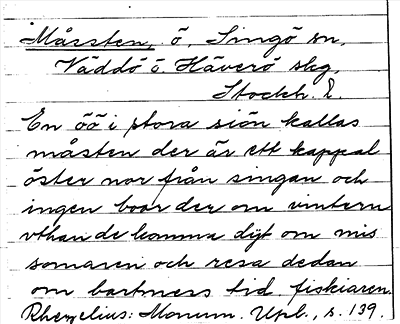 Måssten, ö, Singö sn,
Väddö o. Häverö skg,
Stockh. l.
En öö i stora siön kallas
måsten der är ett kappal
öster nor från singan och
ingen boor der om vintern
vthan de komma dijt om mis
somaren och resa dedan
om bartmers tid fiskiaren.
Rhezelius: Monum. Upl., s. 139.